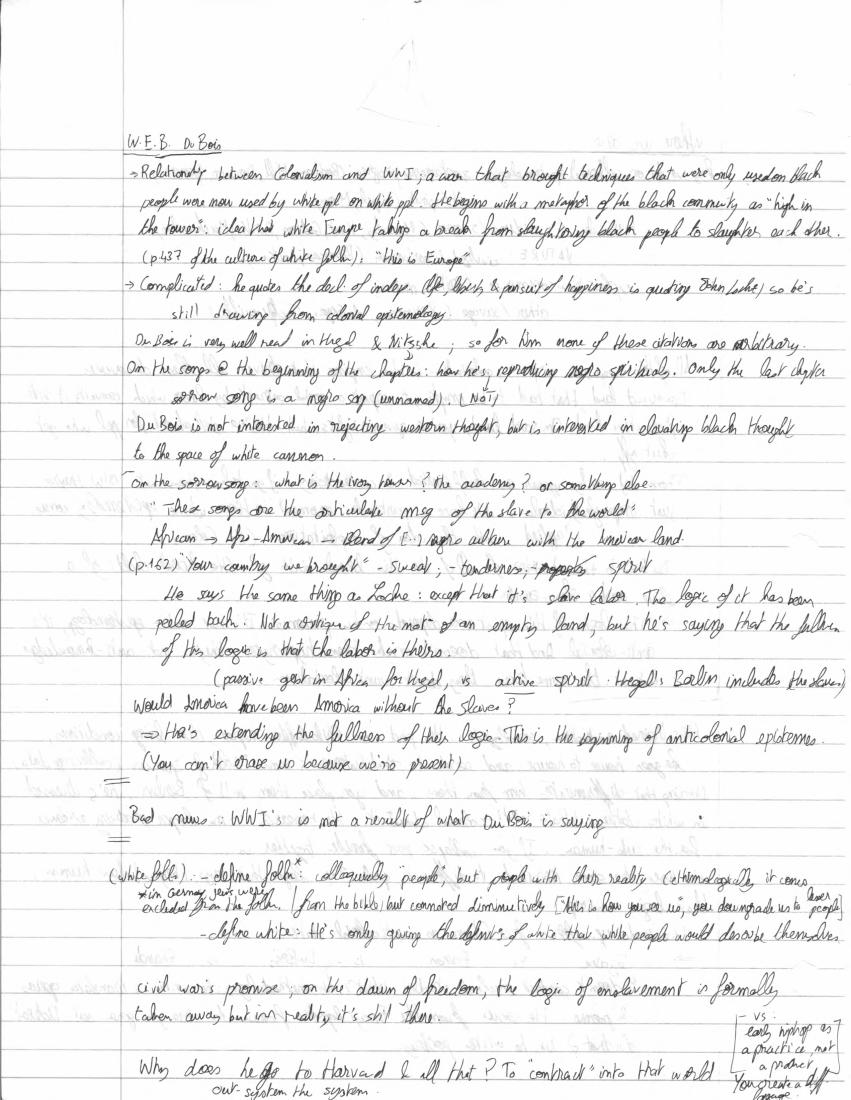 W.E.B. DuBois
→ Relationship between Colonialism and WWI; a war that brought techniques that were only used on black
people were now used by white ppl on white ppl. He begins with a metaphor of the black community as "high in
the tower": idea that white Europe taking a break from slaughtering black people to slaughter each other.
(p437 of the culture of white folk): "this is Europe"
→ Complicated: he quotes the decl. of indep. (life, liberty & pursuit of happiness is quoting John Locke) so he's
still drawing from colonial epistemology.
DuBois is very well read in Hegel & Nitszhe; so for him none of these citations are arbitrary.
On the songs @ the beginning of the chapters: how he's reproducing negro spirituals. Only the last chapter
sorrow song is a negro song (unnamed). (NOT)
DuBois is not interested in rejecting western thought, but is interested in elevating black thought
to the space of white cannon.
On the sorrow song: what is the ivory tower? the academy? or something else.
"These songs are the articulate msg of the slave to the world"
African → Afro-American → Blend of [...] negro culture with the American land.
(p.162) "Your country we brought" - sweat; - tenderness; - spirit
He says the same thing as Locke: except that it's slave labor. The logic of it has been
peeled back. Not a critique of the not° of an empty land, but he's saying that the fullness
of this logic is that the labor is theirs.
(passive gest in Africa for Hegel, vs active spirit. Hegel's Berlin includes the slaves)
Would America have been America without the slaves?
⇒ He's extending the fullness of their logic. This is the beginning of anticolonial epistemes.
(You can't erase us because we're present)
Bad news: WWI's is not a result of what DuBois is saying
(white folk) - define folk*: colloquially "people", but people with their reality (ethimologically it comes
*in Germany jews were
excluded from the folk. / from the bible; but connoted diminutively ["this is how you see us", you downgrade us to lesser people]
- define white: He's only giving the definit°s of white that white people would describe themselves
civil war's promise; on the dawn of freedom, the logic of enslavement is formally
taken away but in reality it's still there.
Why does he go to Harvard & all that? To "contract" into that world
out-system the system.
- vs -
early hiphop as
a practice, not
a product
You create a diff
language